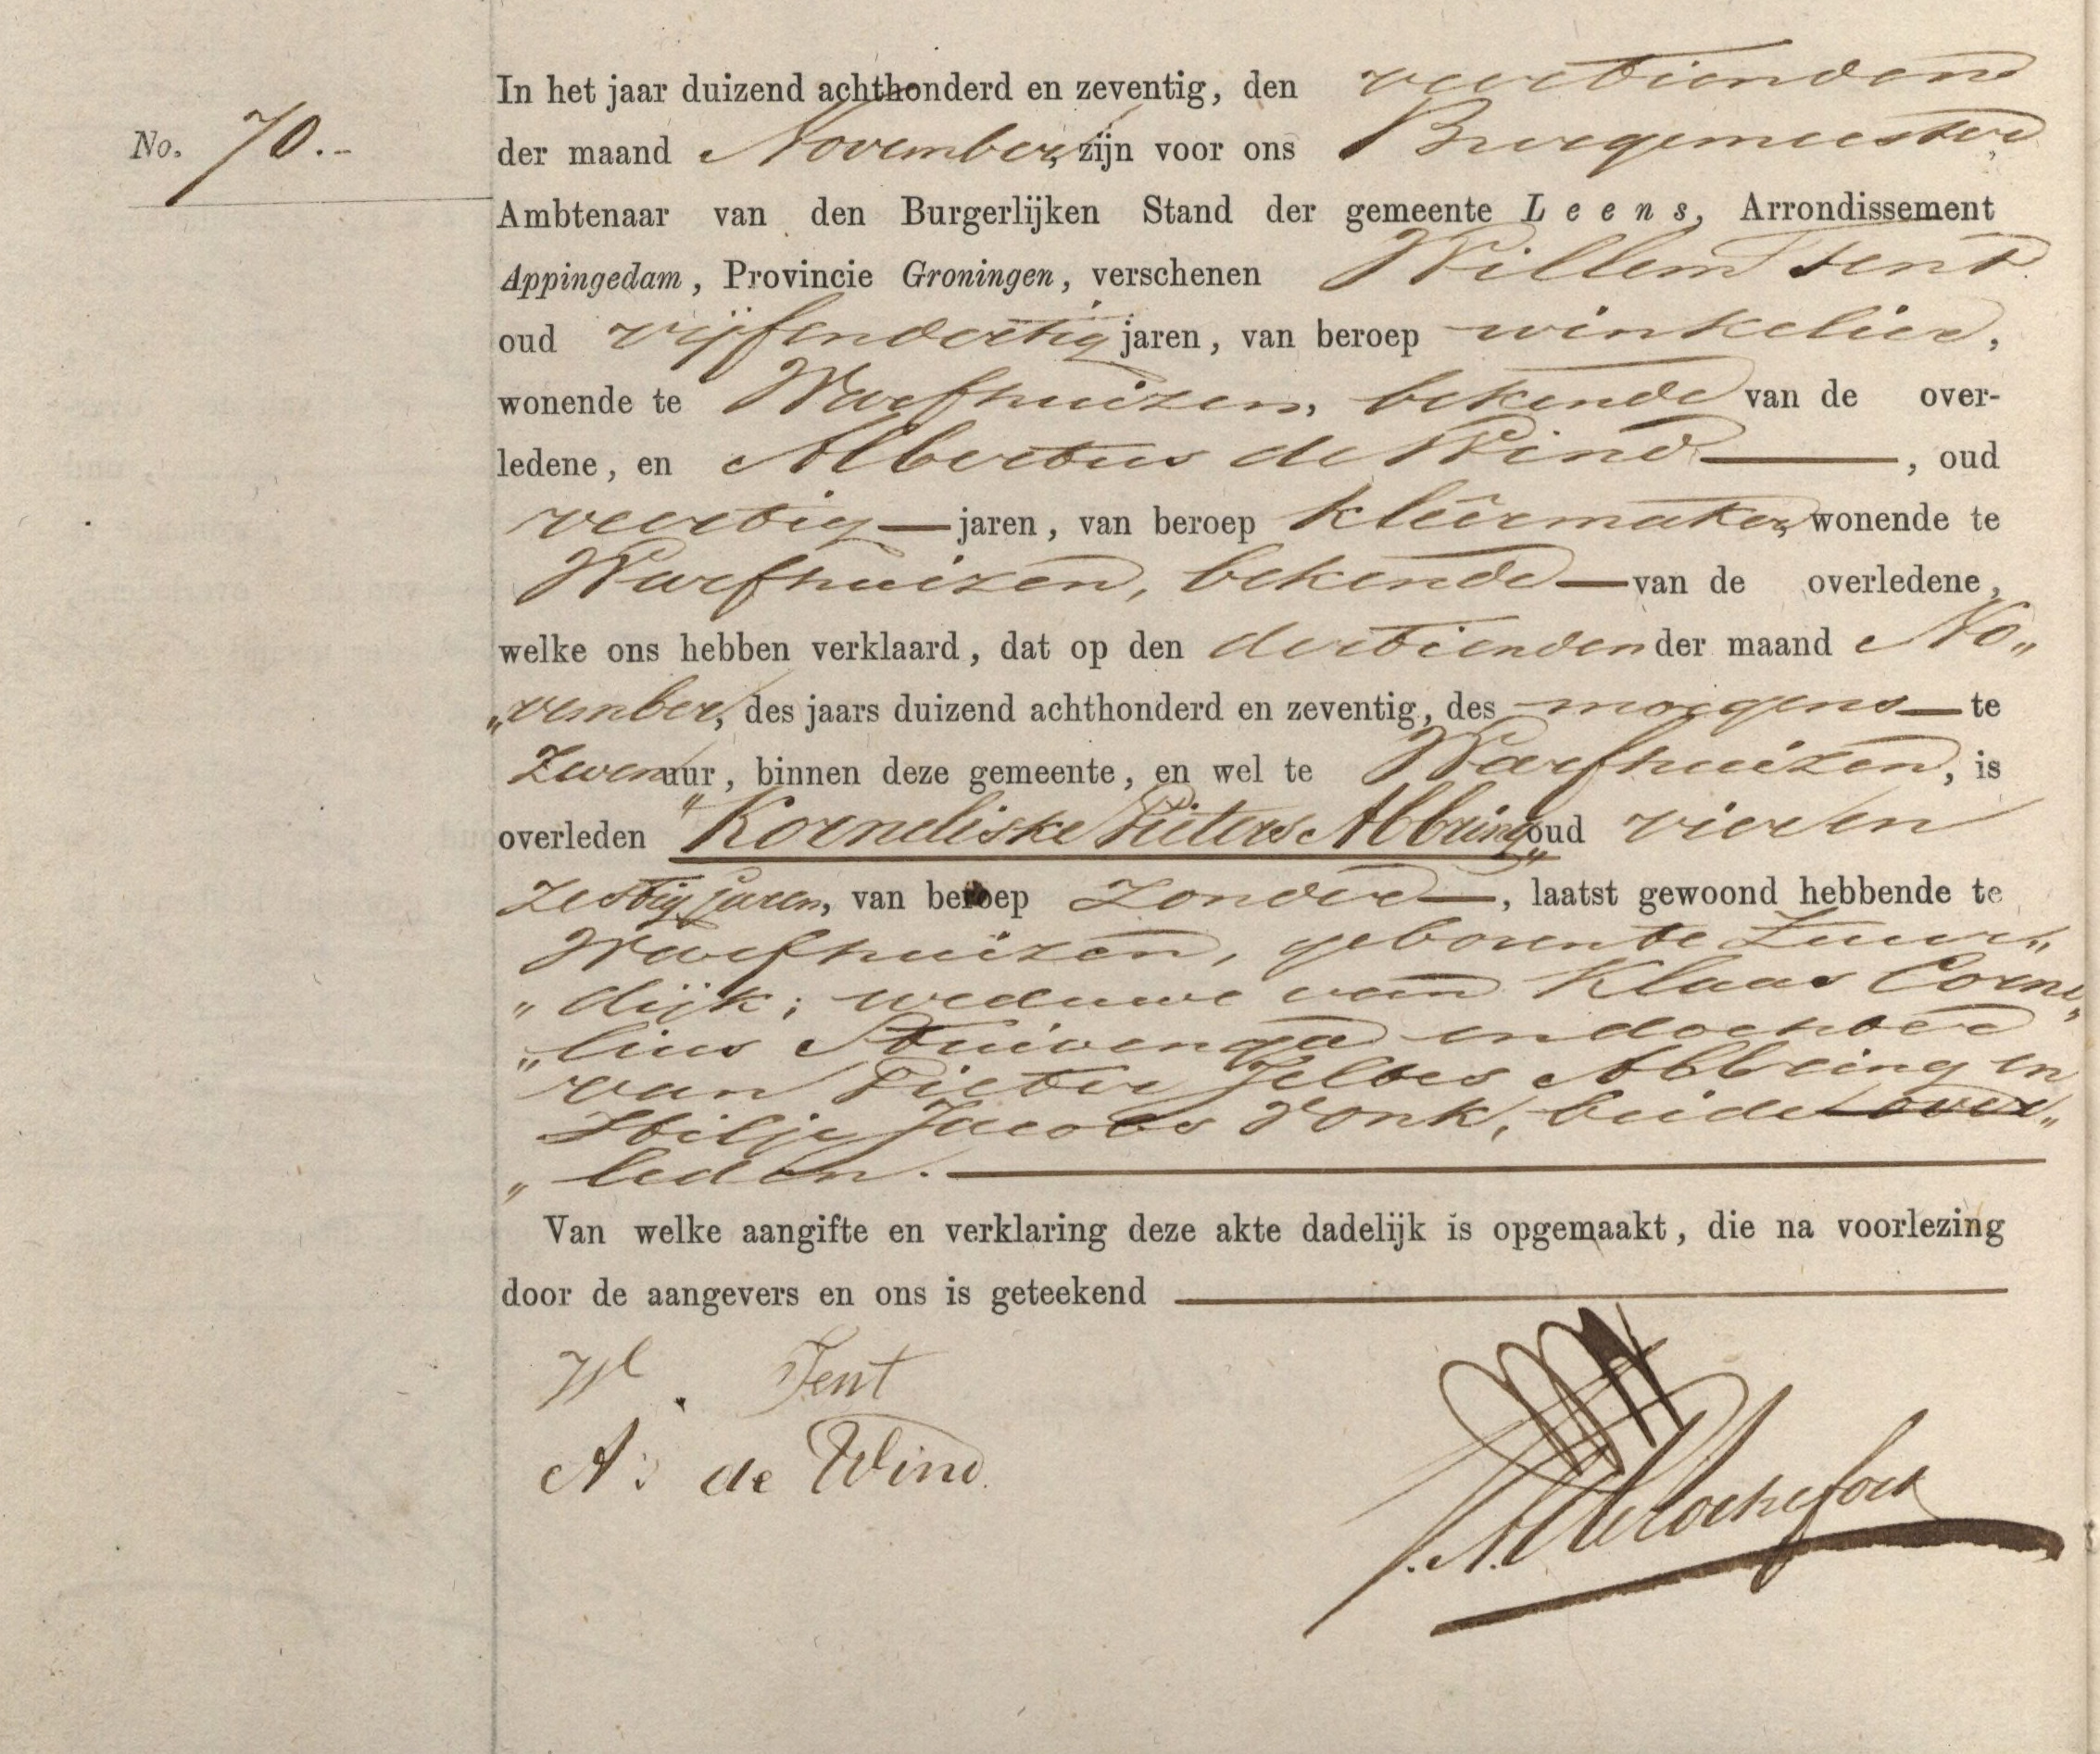 No. 70.-
In het jaar duizend achthonderd en zeventig, den veertienden
der maand November, zijn voor ons Burgemeester,
Ambtenaar van den Burgerlijken Stand der gemeente Leens, Arrondissement
Appingedam, Provincie Groningen, verschenen Willem Tent
oud vijfendertig jaren, van beroep winkelier,
wonende te Warfhuizen, bekende van de over-
ledene, en Albertus de Wind, oud
veertig jaren, van beroep kleêrmaker, wonende te
Warfhuizen, bekende van de overledene,
welke ons hebben verklaard, dat op den dertienden der maand No„
„vember, des jaars duizend achthonderd en zeventig, des morgens te
zeven uur, binnen deze gemeente, en wel te Warfhuizen, is
overleden "Korneliske Pieters Abbring„ oud vier en
zestig jaren, van beroep zonder, laatst gewoond hebbende te
Warfhuizen, geboren te Zuur„
„dijk; weduwe van Klaas Corne„
„lius Stuivenga en dochter
van Pieter Jeltes Abbring en
Hilje Jacobs Vonk, beide over„
„leden.
Van welke aangifte en verklaring deze akte dadelijk is opgemaakt, die na voorlezing
door de aangevers en ons is geteekend
Wl. Tent
As de Wind.